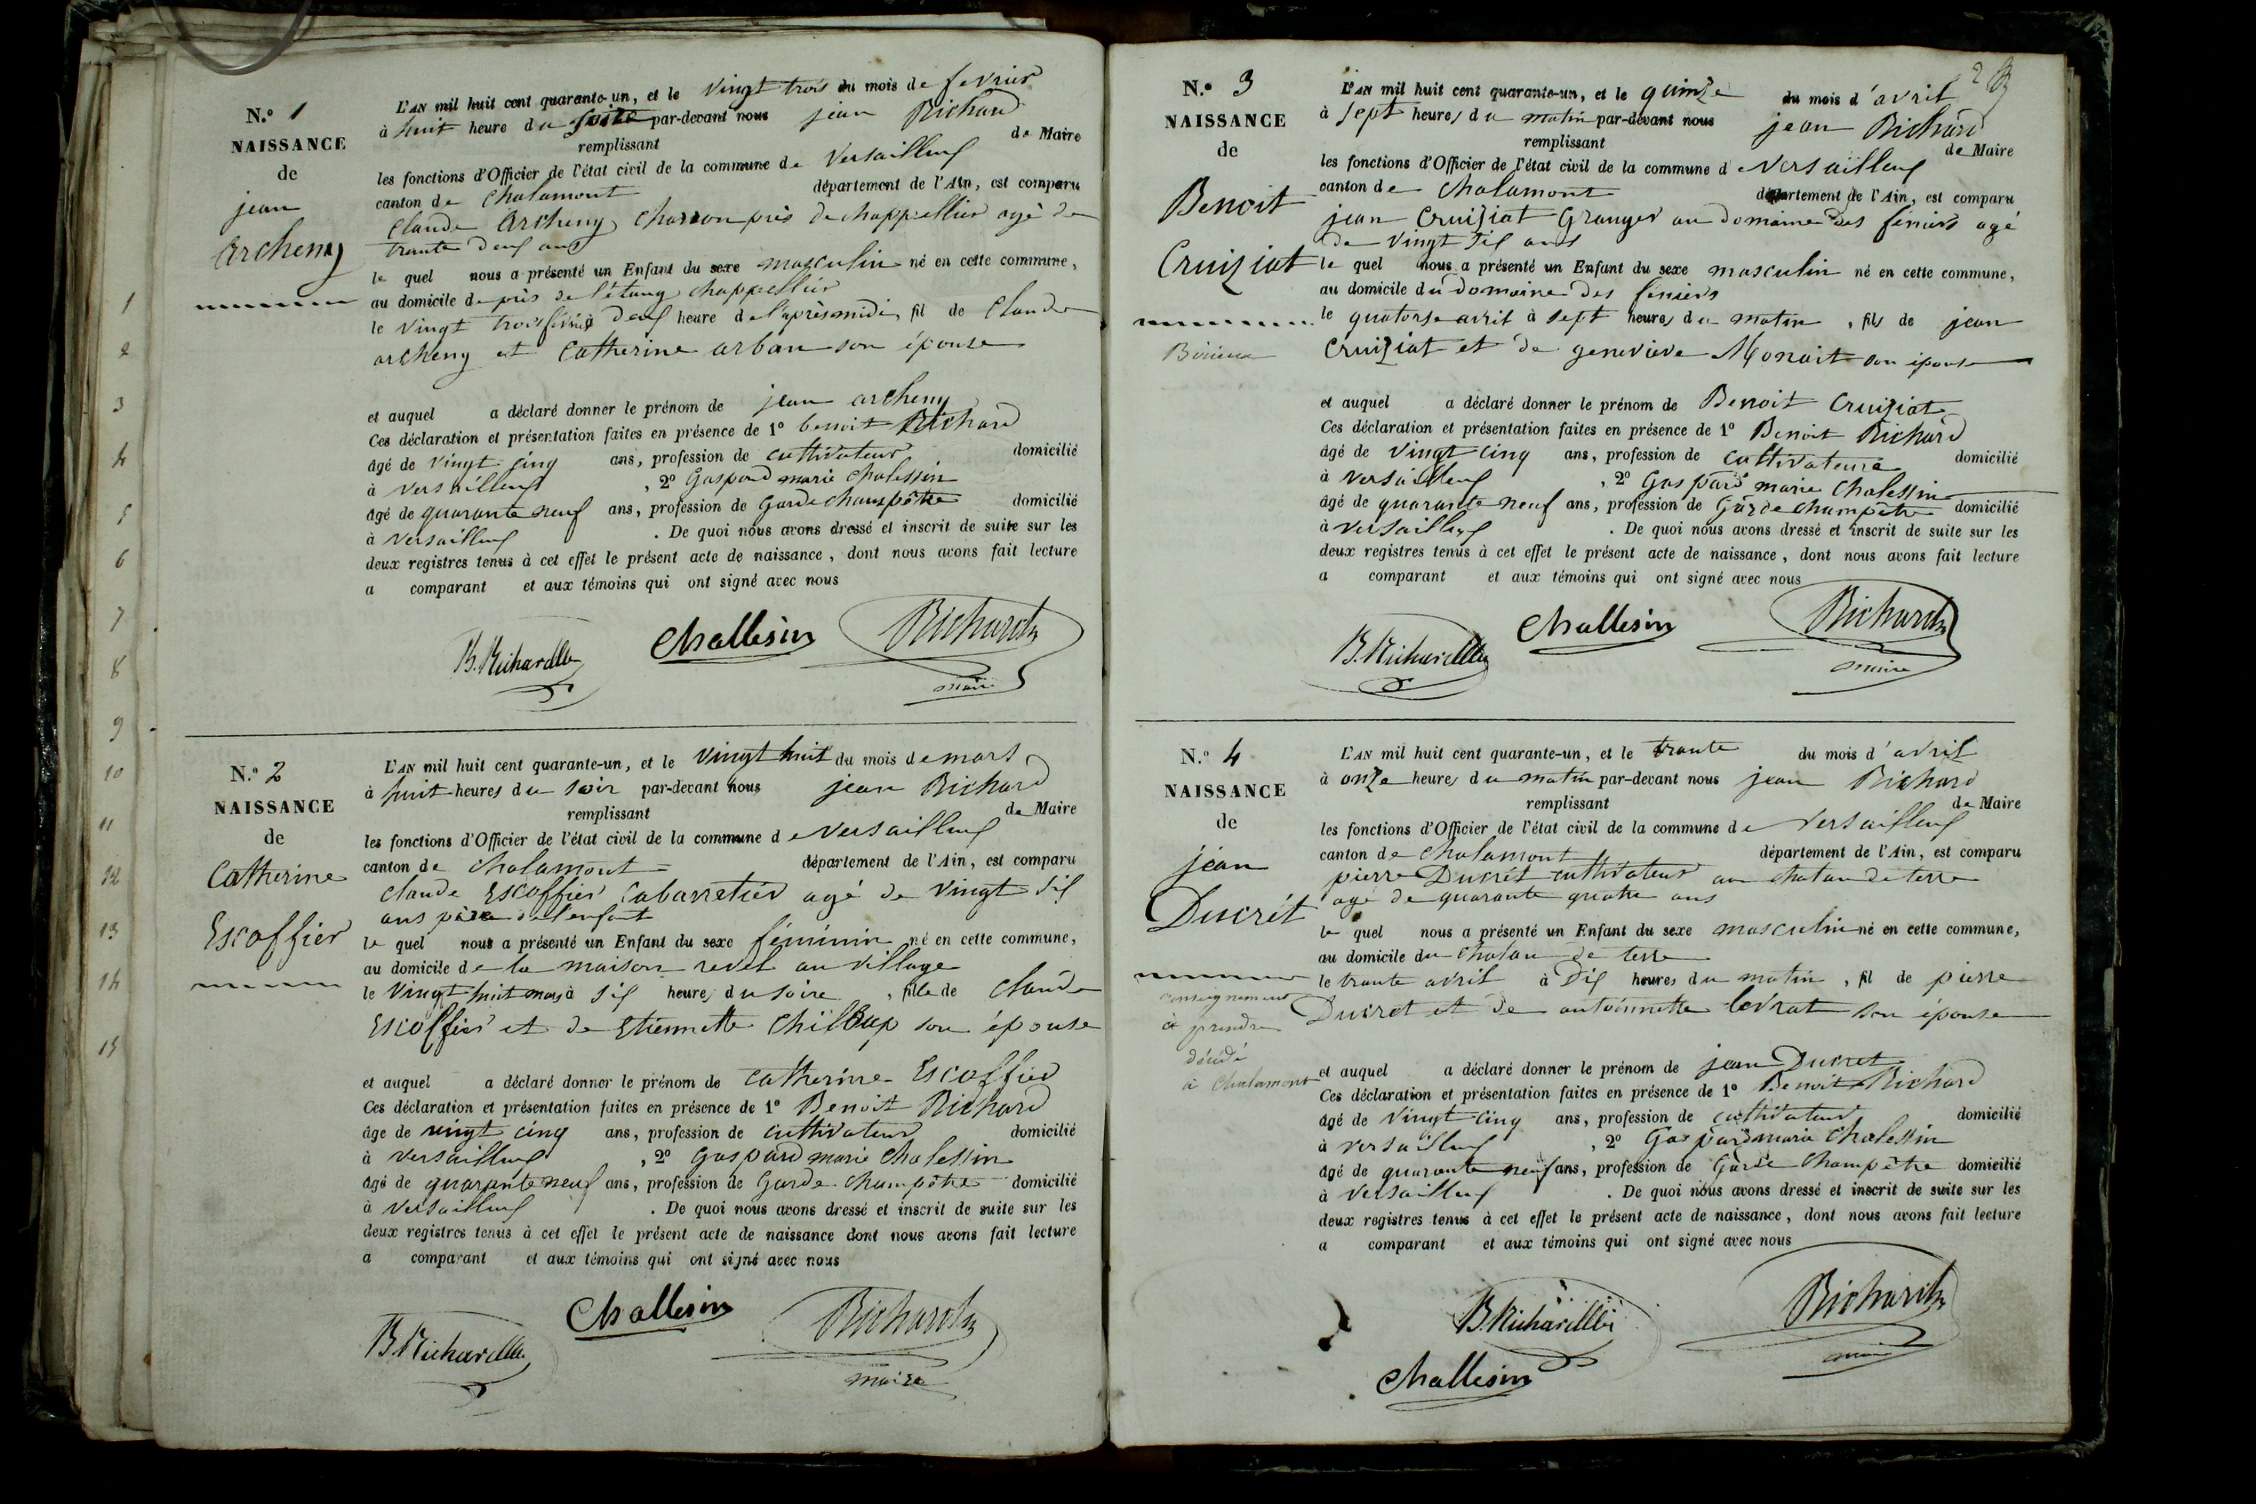 N.º 1
NAISSANCE
de
jean
archeny
L'AN mil huit cent quarante-un, et le vingt trois du mois de fevrier
à huit heure du soire par-devant nous jean Richard
remplissant de Maire
les fonctions d'Officier de l'état civil de la commune de Versailleux
canton de chalamont département de l'Ain, est comparu
claude archeny charron près de chappellier agé de
trante deux ans
le quel nous a présenté un Enfant du sexe masculin né en cette commune,
au domicile de près de l'étang chappellier
le vingt trois févrié à deux heure de l'après midi, fil de claude
archeny et catherine arban son épouse
et auquel a déclaré donner le prénom de jean archeny
Ces déclaration et présentation faites en présence de 1º benoit Richard
âgé de vingt cinq ans, profession de cultivateur domicilié
à versailleux, 2º Gaspard marie chalessin
âgé de quarante neuf ans, profession de Garde champêtre domicilié
à versailleux. De quoi nous avons dressé et inscrit de suite sur les
deux registres tenus à cet effet le présent acte de naissance, dont nous avons fait lecture
a comparant et aux témoins qui ont signé avec nous
B. Richard
Challesin
Richard
maire
1
2
3
4
5
6
7
8
9
10
11
12
13
14
15
N.º 2
NAISSANCE
de
Catherine
Escoffier
L'AN mil huit cent quarante-un, et le vingt huit du mois de mars
à huit heures du soir par-devant nous jean Richard
remplissant de Maire
les fonctions d'Officier de l'état civil de la commune de versailleux
canton de chalamont département de l'Ain, est comparu
claude Escoffier cabarretier agé de vingt six
ans père de l'enfant
le quel nous a présenté un Enfant du sexe féminin né en cette commune,
au domicile de la maison revel au village
le vingt huit mars à six heure, du soire, fille de claude
Escoffier et de Etiennette chilloup son épouse
et auquel a déclaré donner le prénom de catherine Escoffier
Ces déclaration et présentation faites en présence de 1º Benoit Richard
âge de vingt cinq ans, profession de cultivateur domicilié
à versailleux, 2º Gaspard marie chalessin
âgé de quarante neuf ans, profession de Garde champêtre domicilié
à versailleux. De quoi nous avons dressé et inscrit de suite sur les
deux registres tenus à cet effet le présent acte de naissance dont nous avons fait lecture
a comparant et aux témoins qui ont signé avec nous
B. Richard
Challesin
Richard
maire
2
N.º 3
NAISSANCE
de
Benoit
Cruiziat
Birieux
L'AN mil huit cent quarante-un, et le quinze du mois d'avril
à sept heures du matin par-devant nous jean Richard
remplissant de Maire
les fonctions d'Officier de l'état civil de la commune de versailleux
canton de chalamont département de l'Ain, est comparu
jean Cruiziat Granger au domaine des féniers agé
de vingt six ans
le quel nous a présenté un Enfant du sexe masculin né en cette commune,
au domicile du domaine des féniers
le quatorse avril à sept heures du matin, fils de jean
Cruiziat et de genevieve Monait son épouse
et auquel a déclaré donner le prénom de Benoit Cruiziat
Ces déclaration et présentation faites en présence de 1º Benoit Richard
âgé de vingt cinq ans, profession de cultivateure domicilié
à versailleux, 2º Gaspard marie chalessin
âgé de quarante neuf ans, profession de Garde champêtre domicilié
à versailleux. De quoi nous avons dressé et inscrit de suite sur les
deux registres tenus à cet effet le présent acte de naissance, dont nous avons fait lecture
a comparant et aux témoins qui ont signé avec nous
B. Richard
Challesin
Richard
maire
N.º 4
NAISSANCE
de
jean
Ducrét
renseignement
à prendre
décédé
à chalamont
L'AN mil huit cent quarante-un, et le trante du mois d'avril
à onze heures du matin par-devant nous jean Richard
remplissant de Maire
les fonctions d'Officier de l'état civil de la commune de versailleux
canton de chalamont département de l'Ain, est comparu
pierre Ducrét cultivateur au chatau de terre
agé de quarante quatre ans
le quel nous a présenté un Enfant du sexe masculin né en cette commune,
au domicile du chatau de terre
le trante avril à dix heures du matin, fil de pierre
Ducret et de antoinnette levrat son épouse
et auquel a déclaré donner le prénom de jean Ducret
Ces déclaration et présentation faites en présence de 1º Benoit Richard
âgé de vingt cinq ans, profession de cultivateur domicilié
à versailleux, 2º Gaspard marie chalessin
âgé de quarante neuf ans, profession de Garde champêtre domicilié
à versailleux. De quoi nous avons dressé et inscrit de suite sur les
deux registres tenus à cet effet le présent acte de naissance, dont nous avons fait lecture
a comparant et aux témoins qui ont signé avec nous
B. Richard
Challesin
Richard
maire